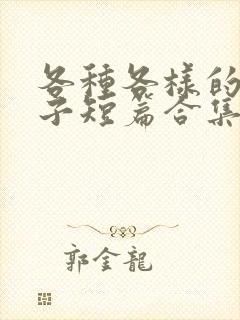 各種各樣的
子短篇合集
郭金龍